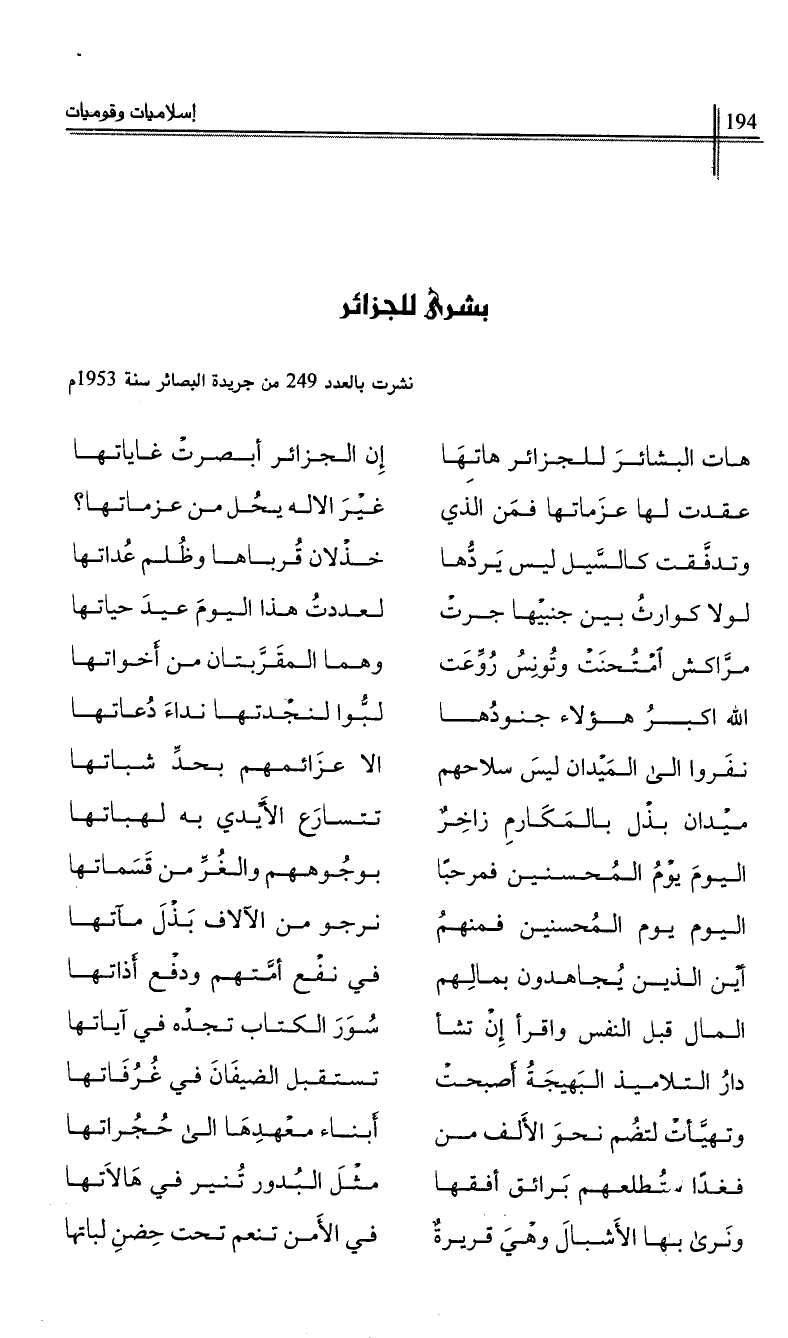 إسلاميات وقوميات 194
بشرى للجزائر
نشرت بالعدد 249 من جريدة البصائر سنة 1953م
هات البشائرَ للجزائر هاتهَا إن الجزائر أبصرتْ غاياتها
عقدت لها عزْماتها فمَن الذي غيْرَ الاله يحُل من عزماتها؟
وتدفَّقت كالسَّيل ليس يَردُّها خذْلان قُرباها وظُلم عُداتها
لولا كوارثُ بين جنبيْها جرتْ لعددتُ هذا اليومَ عيدَ حياتها
مرَّاكش اَمْتُحنَتْ وتُونِسُ رُوِّعَت وهما المقَرَّبتان من أَخواتها
الله اكبرُ هؤلاء جنودُها لبُّوا لنجْدتها نداءَ دُعاتها
نفَروا الى المَيْدان ليسَ سلاحهم الا عزَائمهم بحدِّ شباتها
ميْدان بذْل بالمَكَارِم زاخِرٌ تتسارَع الأَيْدي به لهباتها
اليومَ يوْمُ المُحسنين فمرحبًا بوجُوههم والغُرِّ من قَسَماتها
اليوم يوم المُحسنين فمنهمُ نرجو من الآلاف بَذْلَ مآتها
أين الذين يُجاهدون بمالهم في نفْع أمَّتهم ودفْع أذاتها
المال قبل النفس واقرأ إنْ تشأ سُوَرَ الكتاب تجدْه في آياتها
دارُ التلاميذ البَهيجَةُ أصبحتْ تستقبل الضيفَانَ في غُرُفَاتها
وتهيَّأتْ لتضُم نحوَ الألف من أبناء معْهدِهَا الى حُجُراتها
فغدًا تُطلعهم بَرائق أفقها مثْلَ البُدور تُنير في هَالاَتها
ونَرى بها الأشبالَ وهْيَ قريرةٌ في الأمن تنعم تحت حِضنِ لباتها